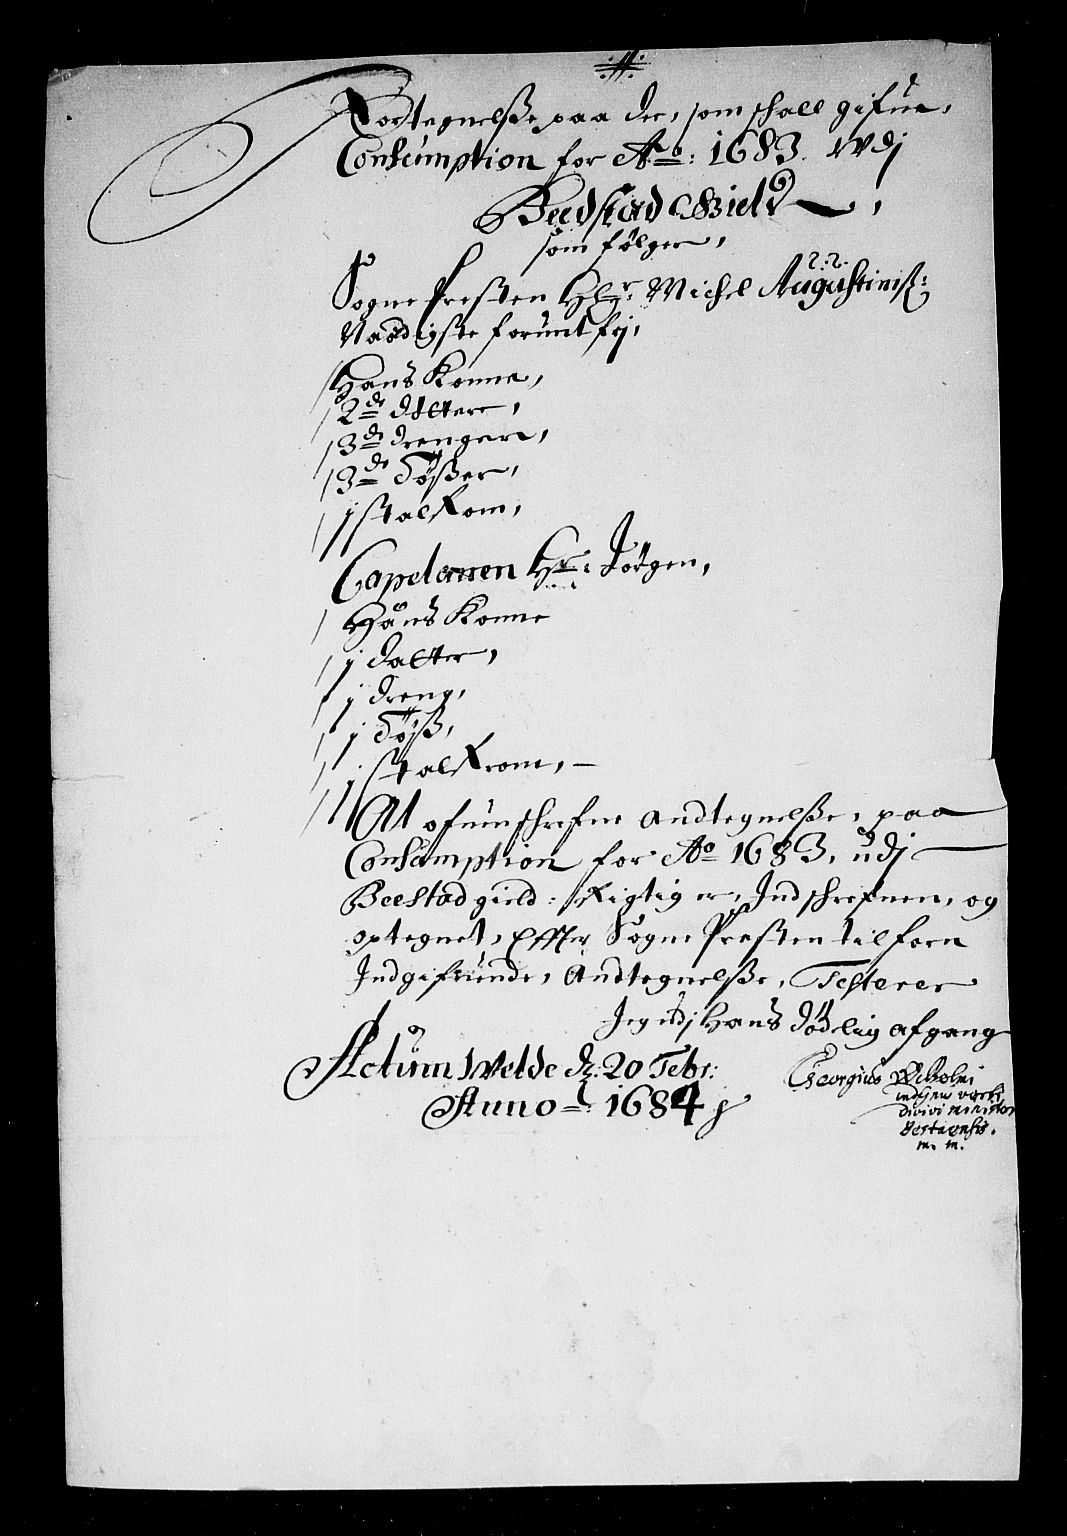 Fortegnelsße paa de, som schall gifue,
Consumption for Ao: 1683. wdj
Beedstad Gield,
som følger,
Sogne Presten Hr. Michel Augustiniß:
Naadigste forunt frj,
Hans Konne,
2de døttere,
3de drengere,
3de Tößer,
j stalKom,
Capelanen Hr: Jörgen,
Hans Konne
j datter,
j dreng,
j Töß,
j stalKrom, —
At ofuenschrefne andtegnelsße, paa
Consumption for Ao 1683, udj
Beestad gield: Rigtig er, Indschrefuen, og
optegnet, Effter Sogne Presten tilforn
Indgifuende, Andtegnelsße, Testerer
Jeg udj Hans dödelig afgang
Actum Welde dz: 20 Febr:
Anno: 1684
Georgius
divini minister
m. m.